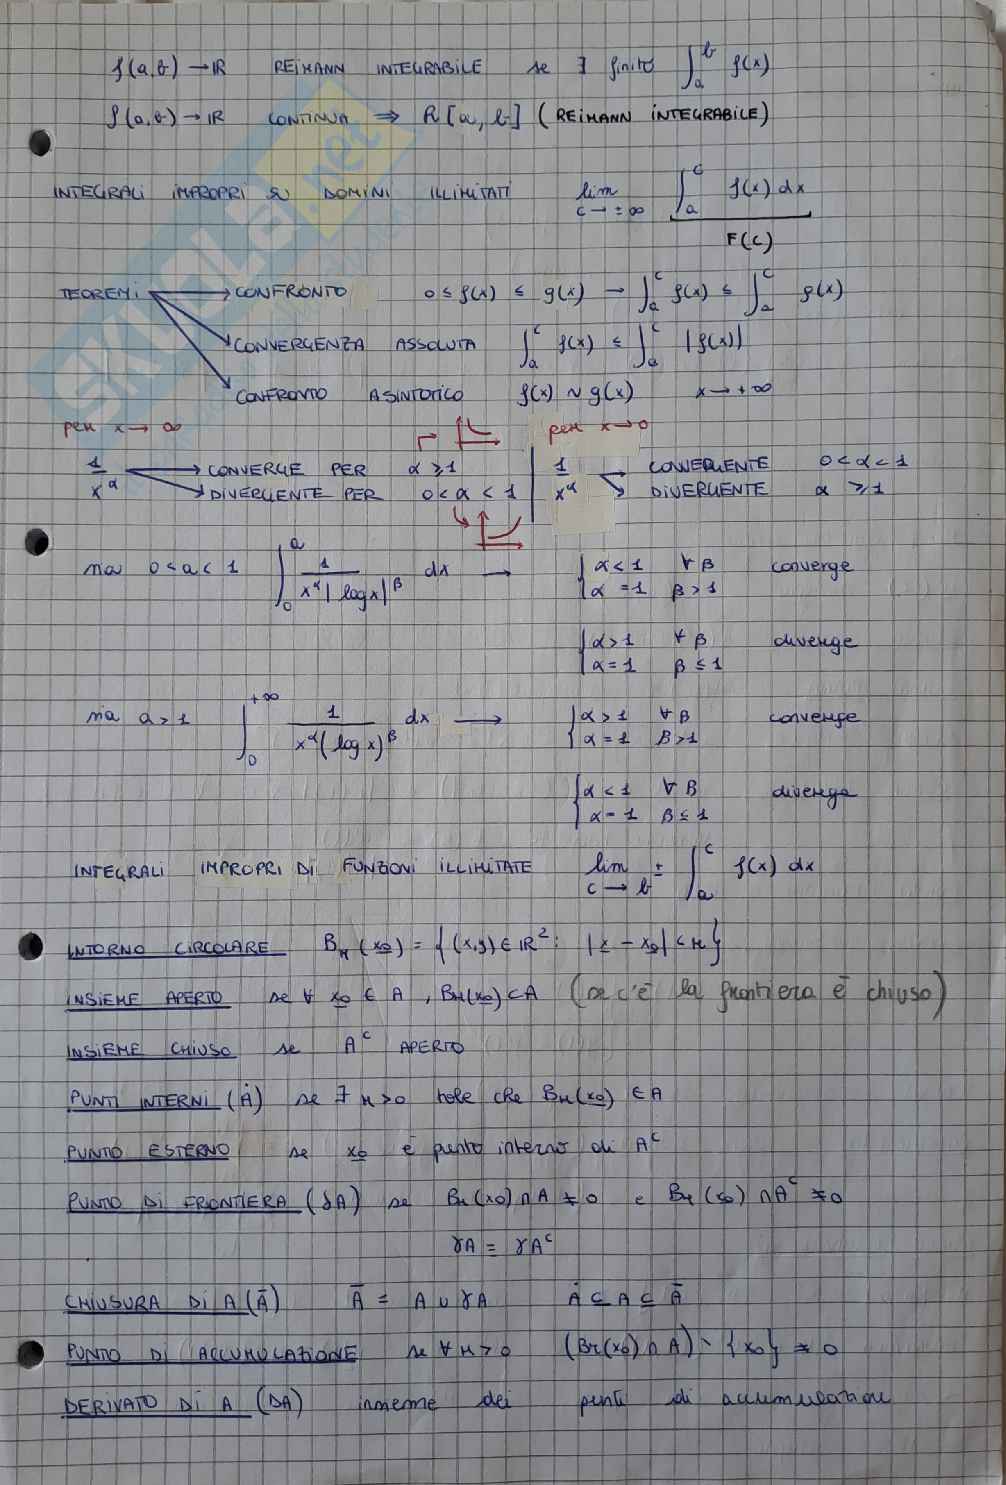 f(a,b) → IR REIMANN INTEGRABILE se ∃ finito ∫_a^b f(x)
f(a,b) → IR CONTINUA ⇒ R[a,b] (REIMANN INTEGRABILE)
INTEGRALI IMPROPRI SU DOMINI ILLIMITATI lim_{c→±∞} ∫_a^c f(x) dx
F(c)
TEOREMI → CONFRONTO 0 ≤ f(x) ≤ g(x) → ∫_a^c f(x) ≤ ∫_a^c g(x)
→ CONVERGENZA ASSOLUTA ∫_a^c f(x) ≤ ∫_a^c |f(x)|
→ CONFRONTO ASINTOTICO f(x) ~ g(x) x → +∞
per x → ∞ per x → 0
1/x^α → CONVERGE PER α ≥ 1 | 1/x^α → CONVERGENTE 0 < α < 1
→ DIVERGENTE PER 0 < α < 1 | → DIVERGENTE α ≥ 1
sia 0 < a < 1 ∫_0^a 1/(x^α |log x|^β) dx → { α < 1 ∀ β converge
α = 1 β > 1
{ α > 1 ∀ β diverge
α = 1 β ≤ 1
sia a > 1 ∫_0^{+∞} 1/(x^α (log x)^β) dx → { α > 1 ∀ β converge
α = 1 β > 1
{ α < 1 ∀ β diverge
α = 1 β ≤ 1
INTEGRALI IMPROPRI DI FUNZIONI ILLIMITATE lim_{c→b^±} ∫_a^c f(x) dx
INTORNO CIRCOLARE B_r(x_0) = {(x,y) ∈ IR²: |x - x_0| < r}
INSIEME APERTO se ∀ x_0 ∈ A, B_r(x_0) ⊂ A (se c'è la frontiera è chiuso)
INSIEME CHIUSO se A^c APERTO
PUNTI INTERNI (Å) se ∃ r > 0 tale che B_r(x_0) ∈ A
PUNTO ESTERNO se x_0 è punto interno di A^c
PUNTO DI FRONTIERA (γA) se B_r(x_0) ∩ A ≠ 0 e B_r(x_0) ∩ A^c ≠ 0
γA = γA^c
CHIUSURA DI A (Ā) Ā = A ∪ γA Å ⊆ A ⊆ Ā
PUNTO DI ACCUMULAZIONE se ∀ r > 0 (B_r(x_0) ∩ A) \ {x_0} ≠ 0
DERIVATO DI A (DA) insieme dei punti di accumulazione
SKUOLA.net